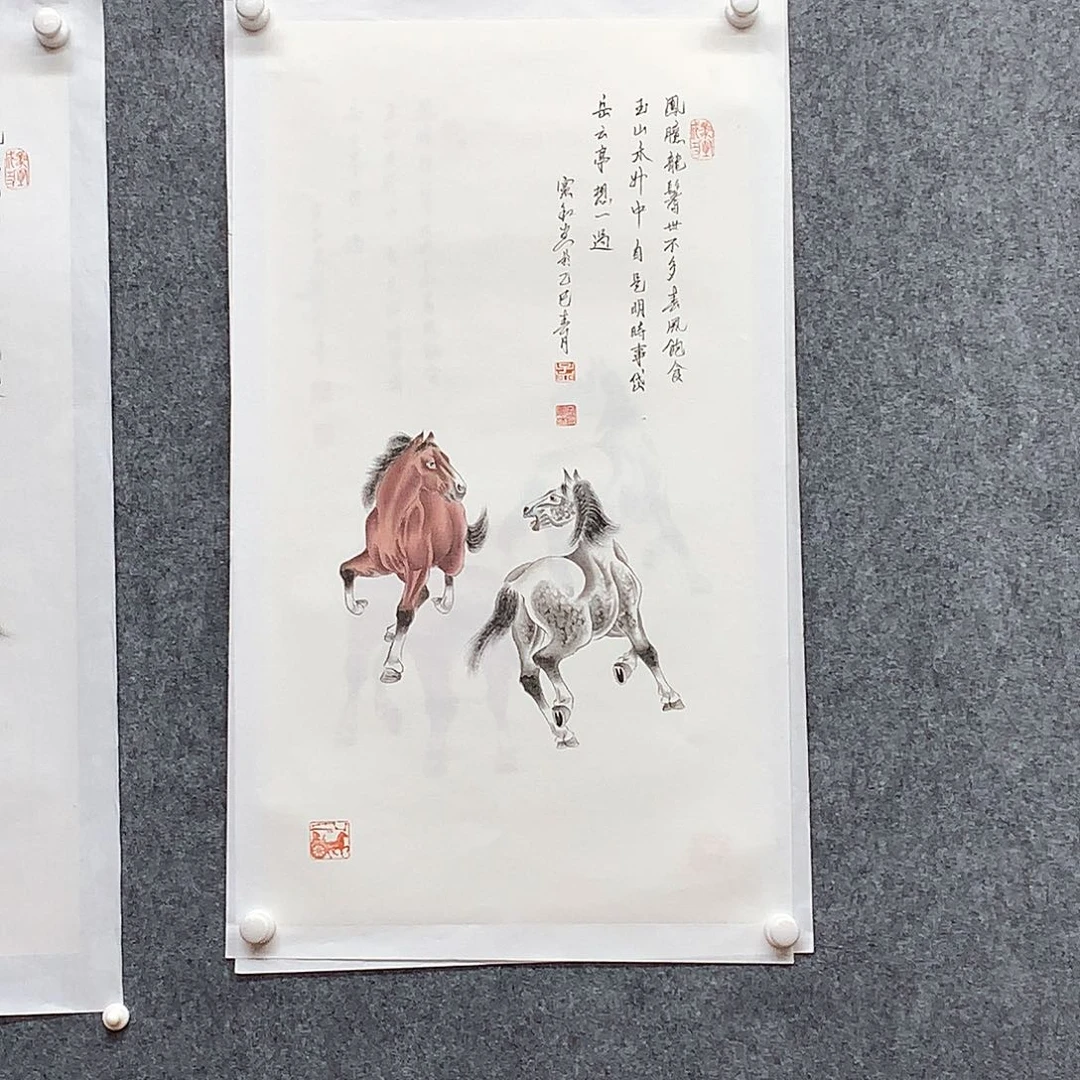 鳳臆龍鬐世不多春風飽食
玉山禾外中自是明時事
岳云亭想一過
乙巳春月